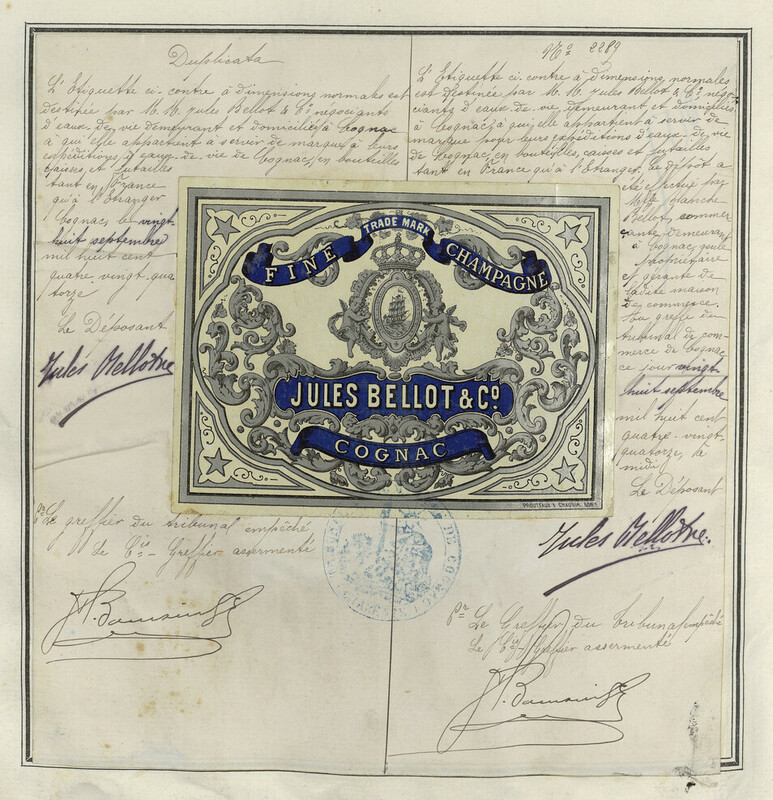 Duplicata
L'Etiquette ci-contre à dimensions normales est
destinée par M.M. Jules Bellot & Cie négociants
d'eaux-de-vie demeurant et domiciliés à Cognac
à qui elle appartient à servir de marque à leurs
expéditions d'eaux-de-vie de Cognac, en bouteilles
caisses, et futailles
tant en France
qu'à l'Etranger
Cognac, le vingt-
huit septembre
mil huit cent
quatre-vingt-qua
torze
Le Déposant
Jules Bellot &Cie
Pr Le greffier du tribunal empêché
Le Cis-Greffier assermenté
No 2289
L'Etiquette ci-contre à dimensions normales
est destinée par M.M. Jules Bellot & Cie négo-
ciants d'eaux-de-vie, demeurant et domiciliés
à Cognac, à qui elle appartient à servir de
marque pour leurs expéditions d'eaux-de-vie
de Cognac, en bouteilles, caisses et futailles
tant en France qu'à l'Etranger. Le dépôt a
été effectué par
Mlle Blanche
Bellot, commer
çante demeurant
à Cognac, seule
propriétaire
et gérante de
ladite maison
de commerce.
Au greffe du
tribunal de com-
merce de Cognac
ce jour vingt-
huit septembre
mil huit cent
quatre-vingt-
quatorze, à
midi
Le Déposant
Jules Bellot &Cie
Pr Le Greffier du tribunal empêché
Le Cis-Greffier assermenté
TRADE MARK
FINE CHAMPAGNE
JULES BELLOT & Co
COGNAC